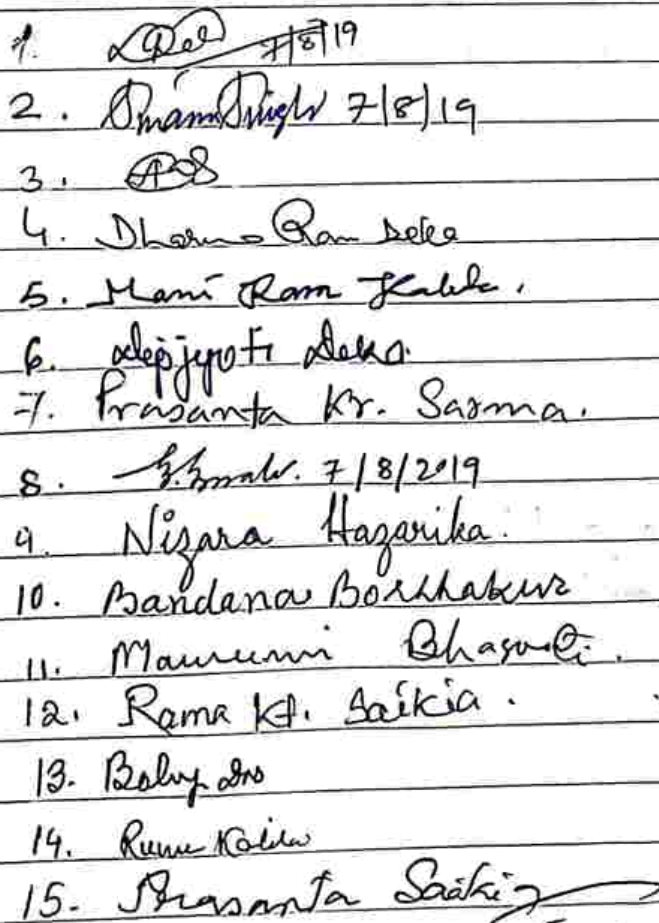 1. 7/8/19
2. Singh 7/8/19
3.
4. Dharma Ram Deka
5. Mani Ram Kalita.
6. Depjyoti Deka.
7. Prasanta Kr. Sarma.
8. 7/8/2019
9. Nizara Hazarika.
10. Bandana Borthakur
11. Mausumi Bhagawati.
12. Rama Kt. Saikia.
13. Baby Das
14. Runu Kalita
15. Prasanta Saikia